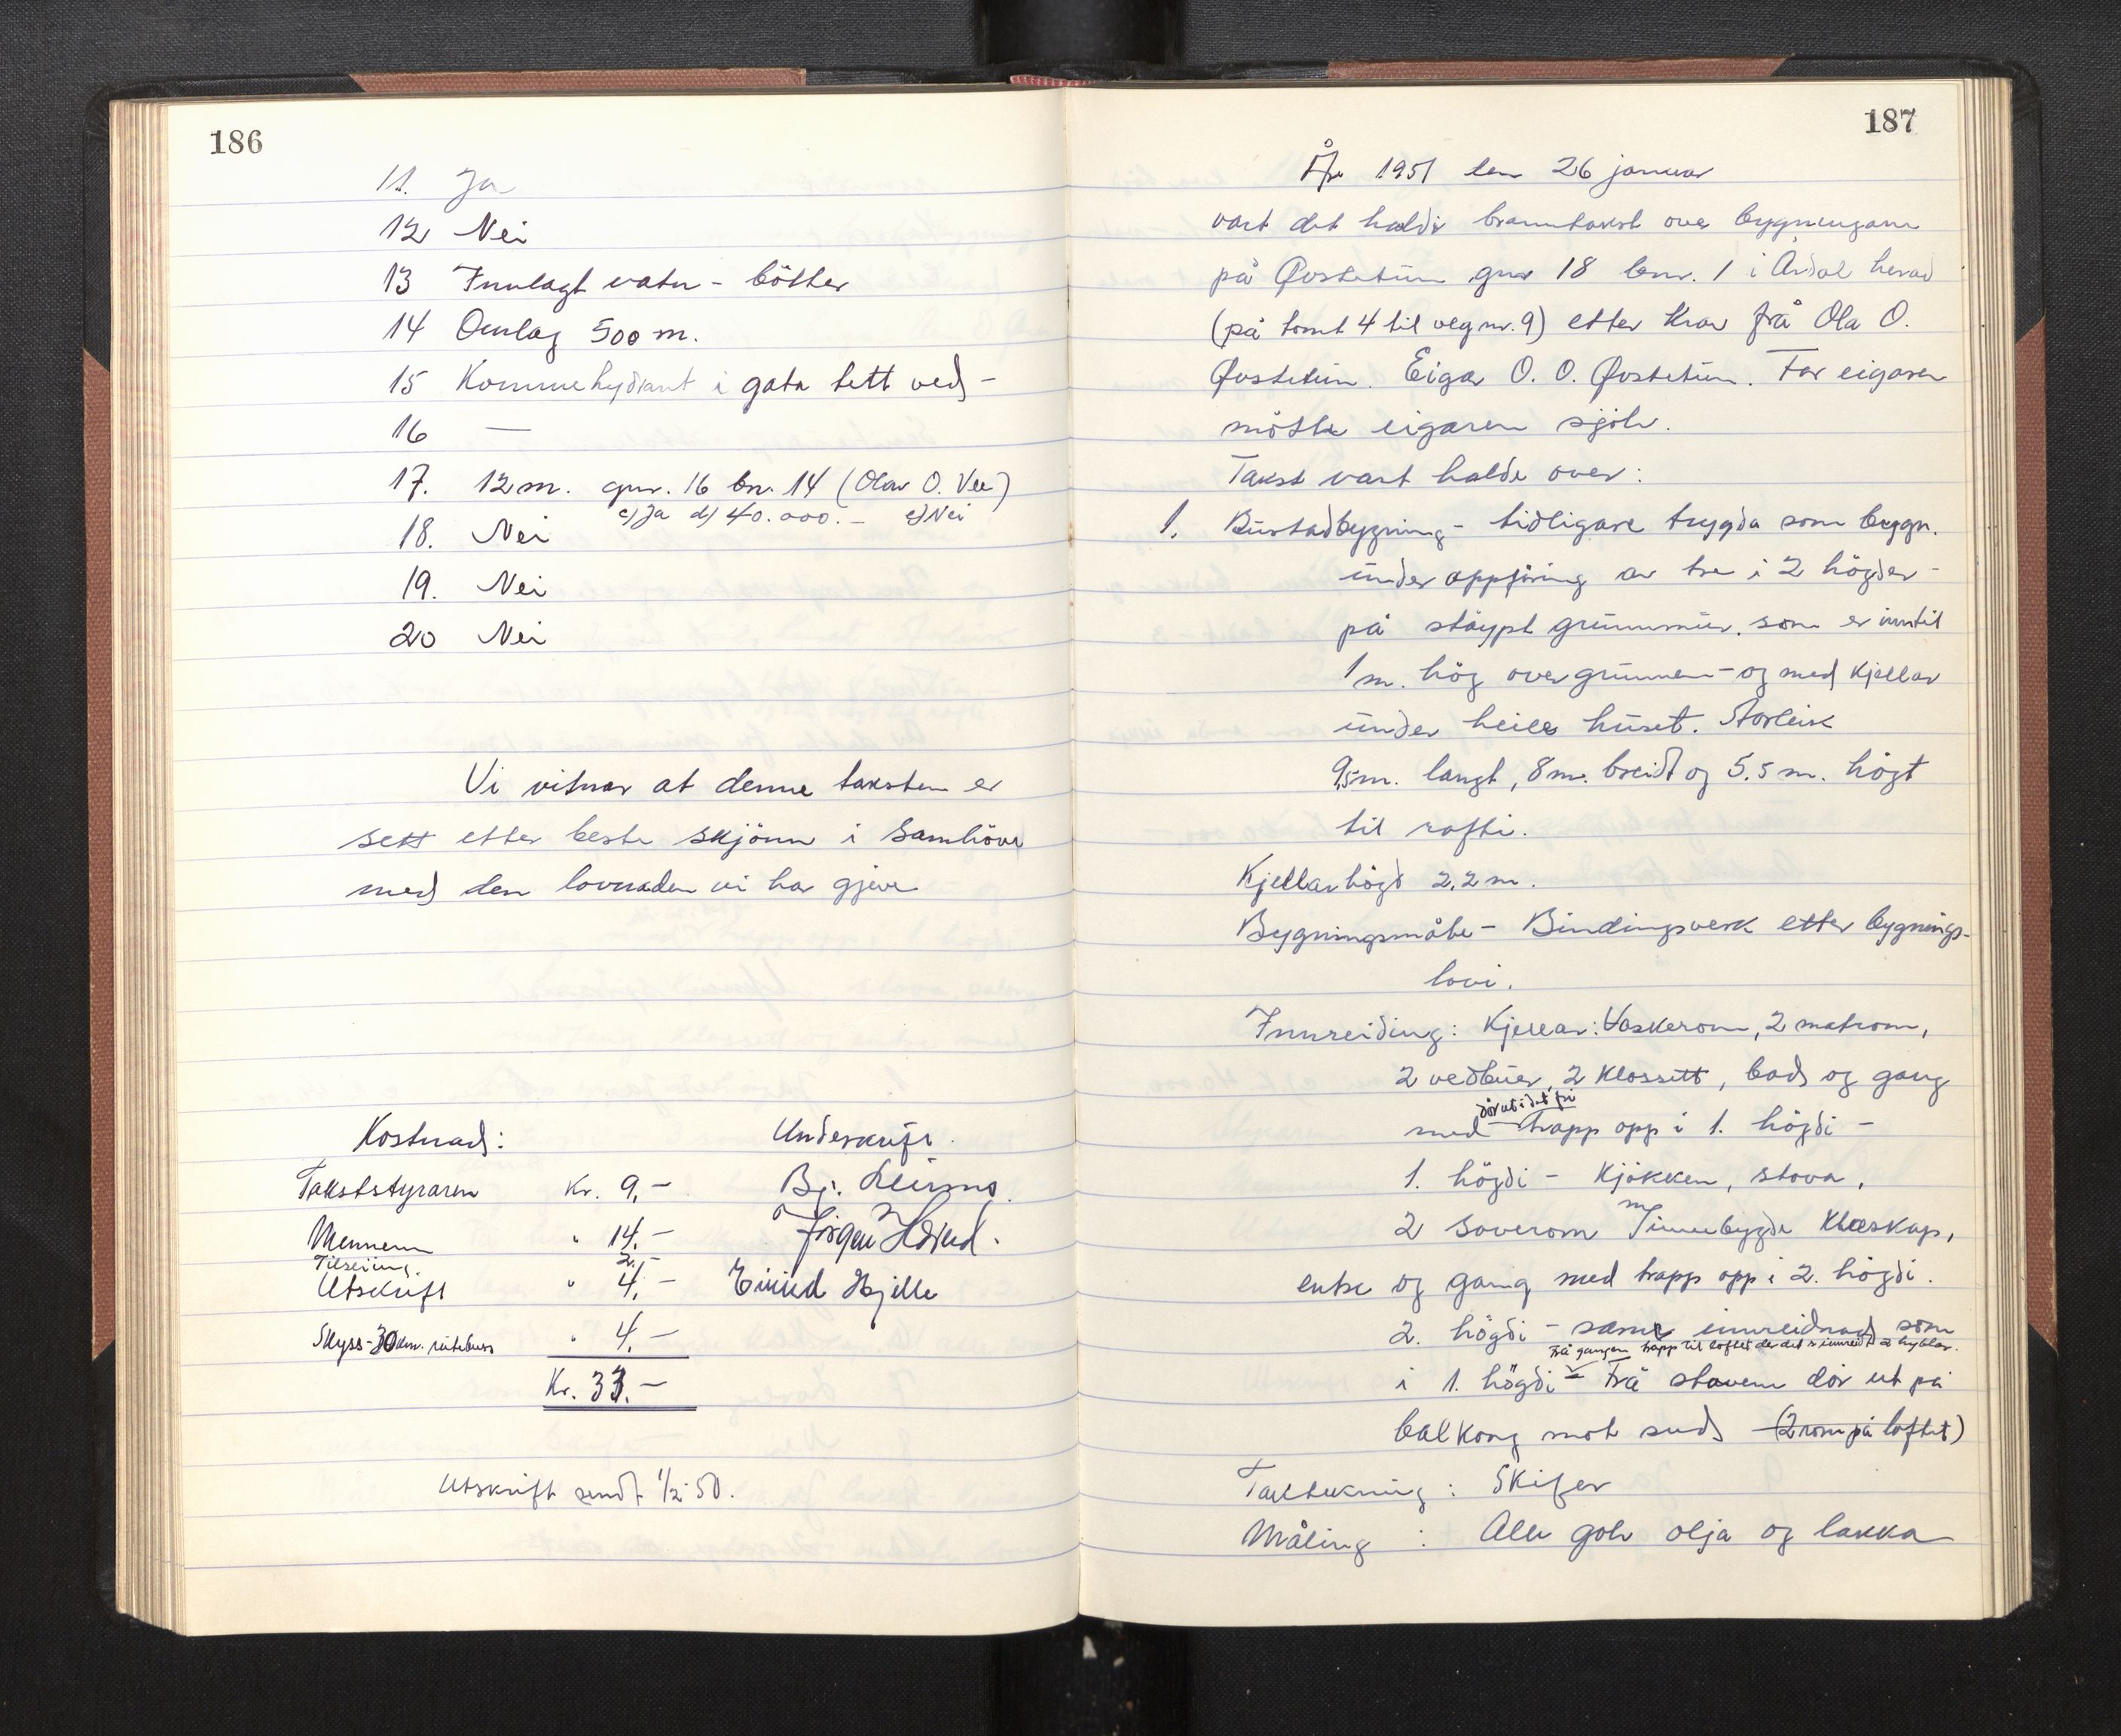 186
11. Ja
12 Nei
13 Innlagt vatn - bötter
14 Omlag 500 m.
15 Komme hydrant i gata tett ved -
16 —
17. 12 m. gnr. 16 bn. 14 (Olav O. Vee)
c) Ja d) 40.000.- e) Nei
18. Nei
19. Nei
20 Nei
Vi vitnar at denne taksten er
sett etter beste skjönn i samhöve
med den lovnaden vi har gjeve
Kostnad: Underskrift.
Takststyraren Kr. 9,- Bj.
Mennene " 14,- Jörgen
Tilseiing. 2.-
Utskrift " 4,- Eivind Hjelle
Skyss - 30 km. rutebuss " 4.-
Kr. 33.-
Utskrift sendt 1/2 50.
187
År 1951 den 26 januar
vart det halde branntakst over bygningane
på Øvstetun gnr 18 bnr. 1 i Årdal herad
(på tomt 4 til veg nr. 9) etter krav frå Ola O.
Øvstetun. Eigar O. O. Øvstetun. For eigaren
mötte eigaren sjölv.
Takst vart halde over:
1. Bustadbygning - tidligare trygda som bygn.
under oppföring av tre i 2 högder -
på stöypt grunnmur. som er inntil
1 m. hög over grunnen - og med kjellar
under heile huset. Storleik
9,5 m. langt, 8 m. breidt og 5.5 m. högt
til rafti.
Kjellarhögd 2,2 m.
Bygningsmåte - Bindingsverk etter bygnings-
lovi.
Innreiding: Kjellar: Vaskerom, 2 matrom,
2 vedbuer, 2 klossett, bad og gang
dör ut i det fri
med - trapp opp i 1. högdi -
1. högdi - Kjökken, stova,
2 soverom m/ innebygde klæskap,
entre og gang med trapp opp i 2. högdi.
2. högdi - same innreidnad som
Frå gangen trapp til loftet der det er innreidd 2 hyblar.
i 1. högdi - Frå stovem dör ut på
balkong mot sud - (2 rom på loftet)
Taktekning: Skifer
Måling : Alle golv olja og lakka